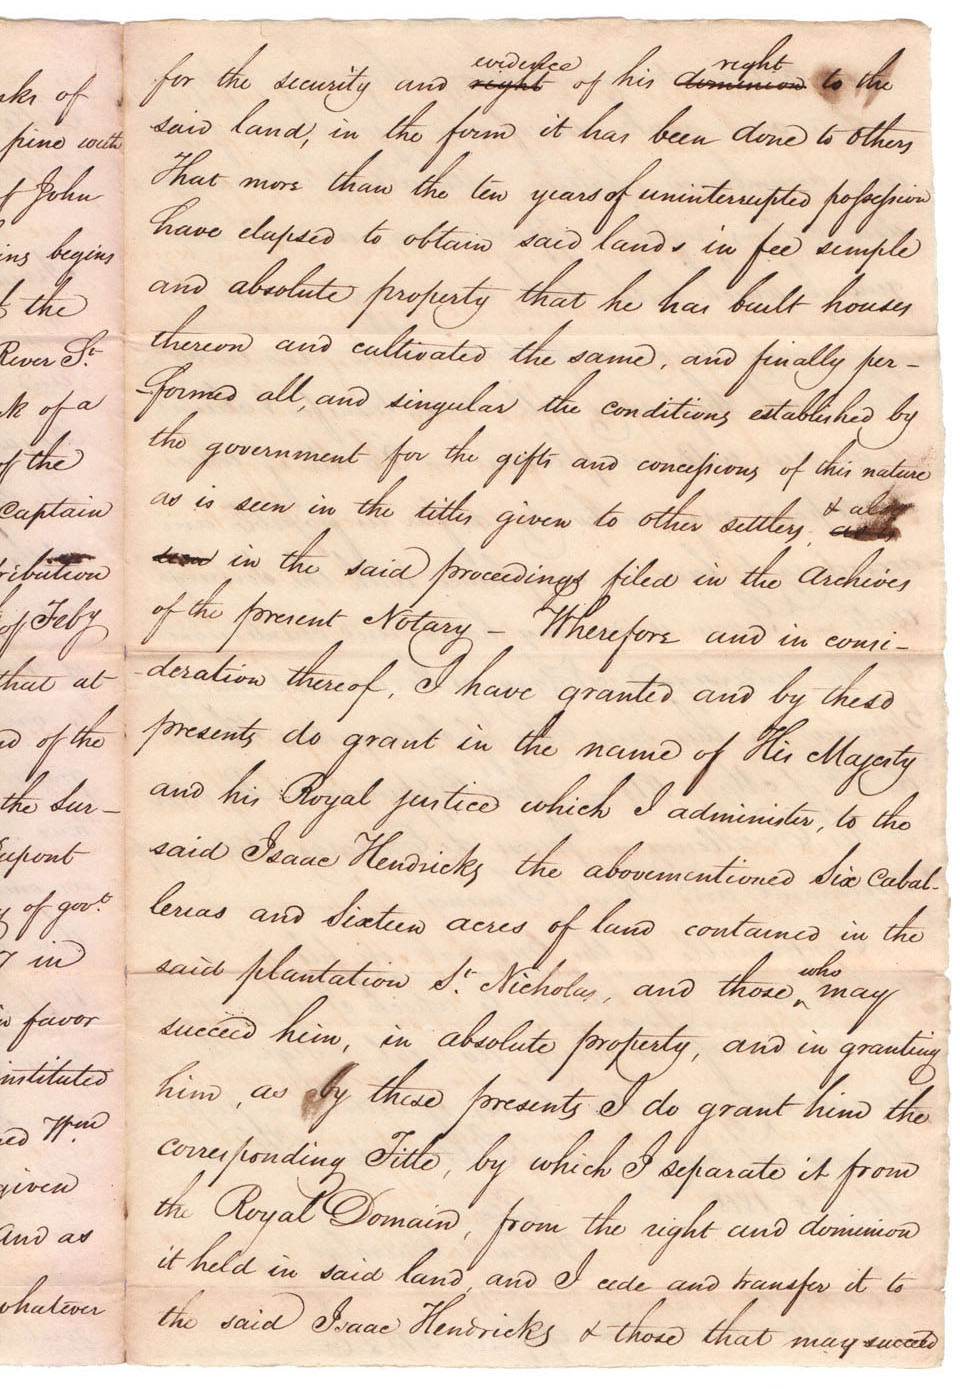 nks of
pine with
f John
ins begins
f the
River St.
k of a
of the
Captain
ribution
of Feby
that at
ed of the
the Sur-
Dupont
y of govt.
7 in
n favor
instituted
ed Wm
given
And as
whatever
for the security and right evidence of his dominion right to the
said land, in the form it has been done to others
That more than the ten years of uninterrupted possession
have elapsed to obtain said lands in fee simple
and absolute property that he has built houses
thereon and cultivated the same, and finally per-
-formed all, and singular the conditions established by
the government for the gifts and concessions of this nature
as is seen in the titles given to other settlers, as is & also
seen in the said proceedings filed in the Archives
of the present Notary - Wherefore and in consi-
-deration thereof, I have granted and by these
presents do grant in the name of His Majesty
and his Royal justice which I administer, to the
said Isaac Hendricks the abovementioned Six Cabal-
lerias and Sixteen acres of land contained in the
said plantation St. Nicholas, and those who may
succeed him, in absolute property, and in granting
him, as by these presents I do grant him the
corresponding Title, by which I separate it from
the Royal Domain, from the right and dominion
it held in said land, and I cede and transfer it to
the said Isaac Hendricks & those that may succeed